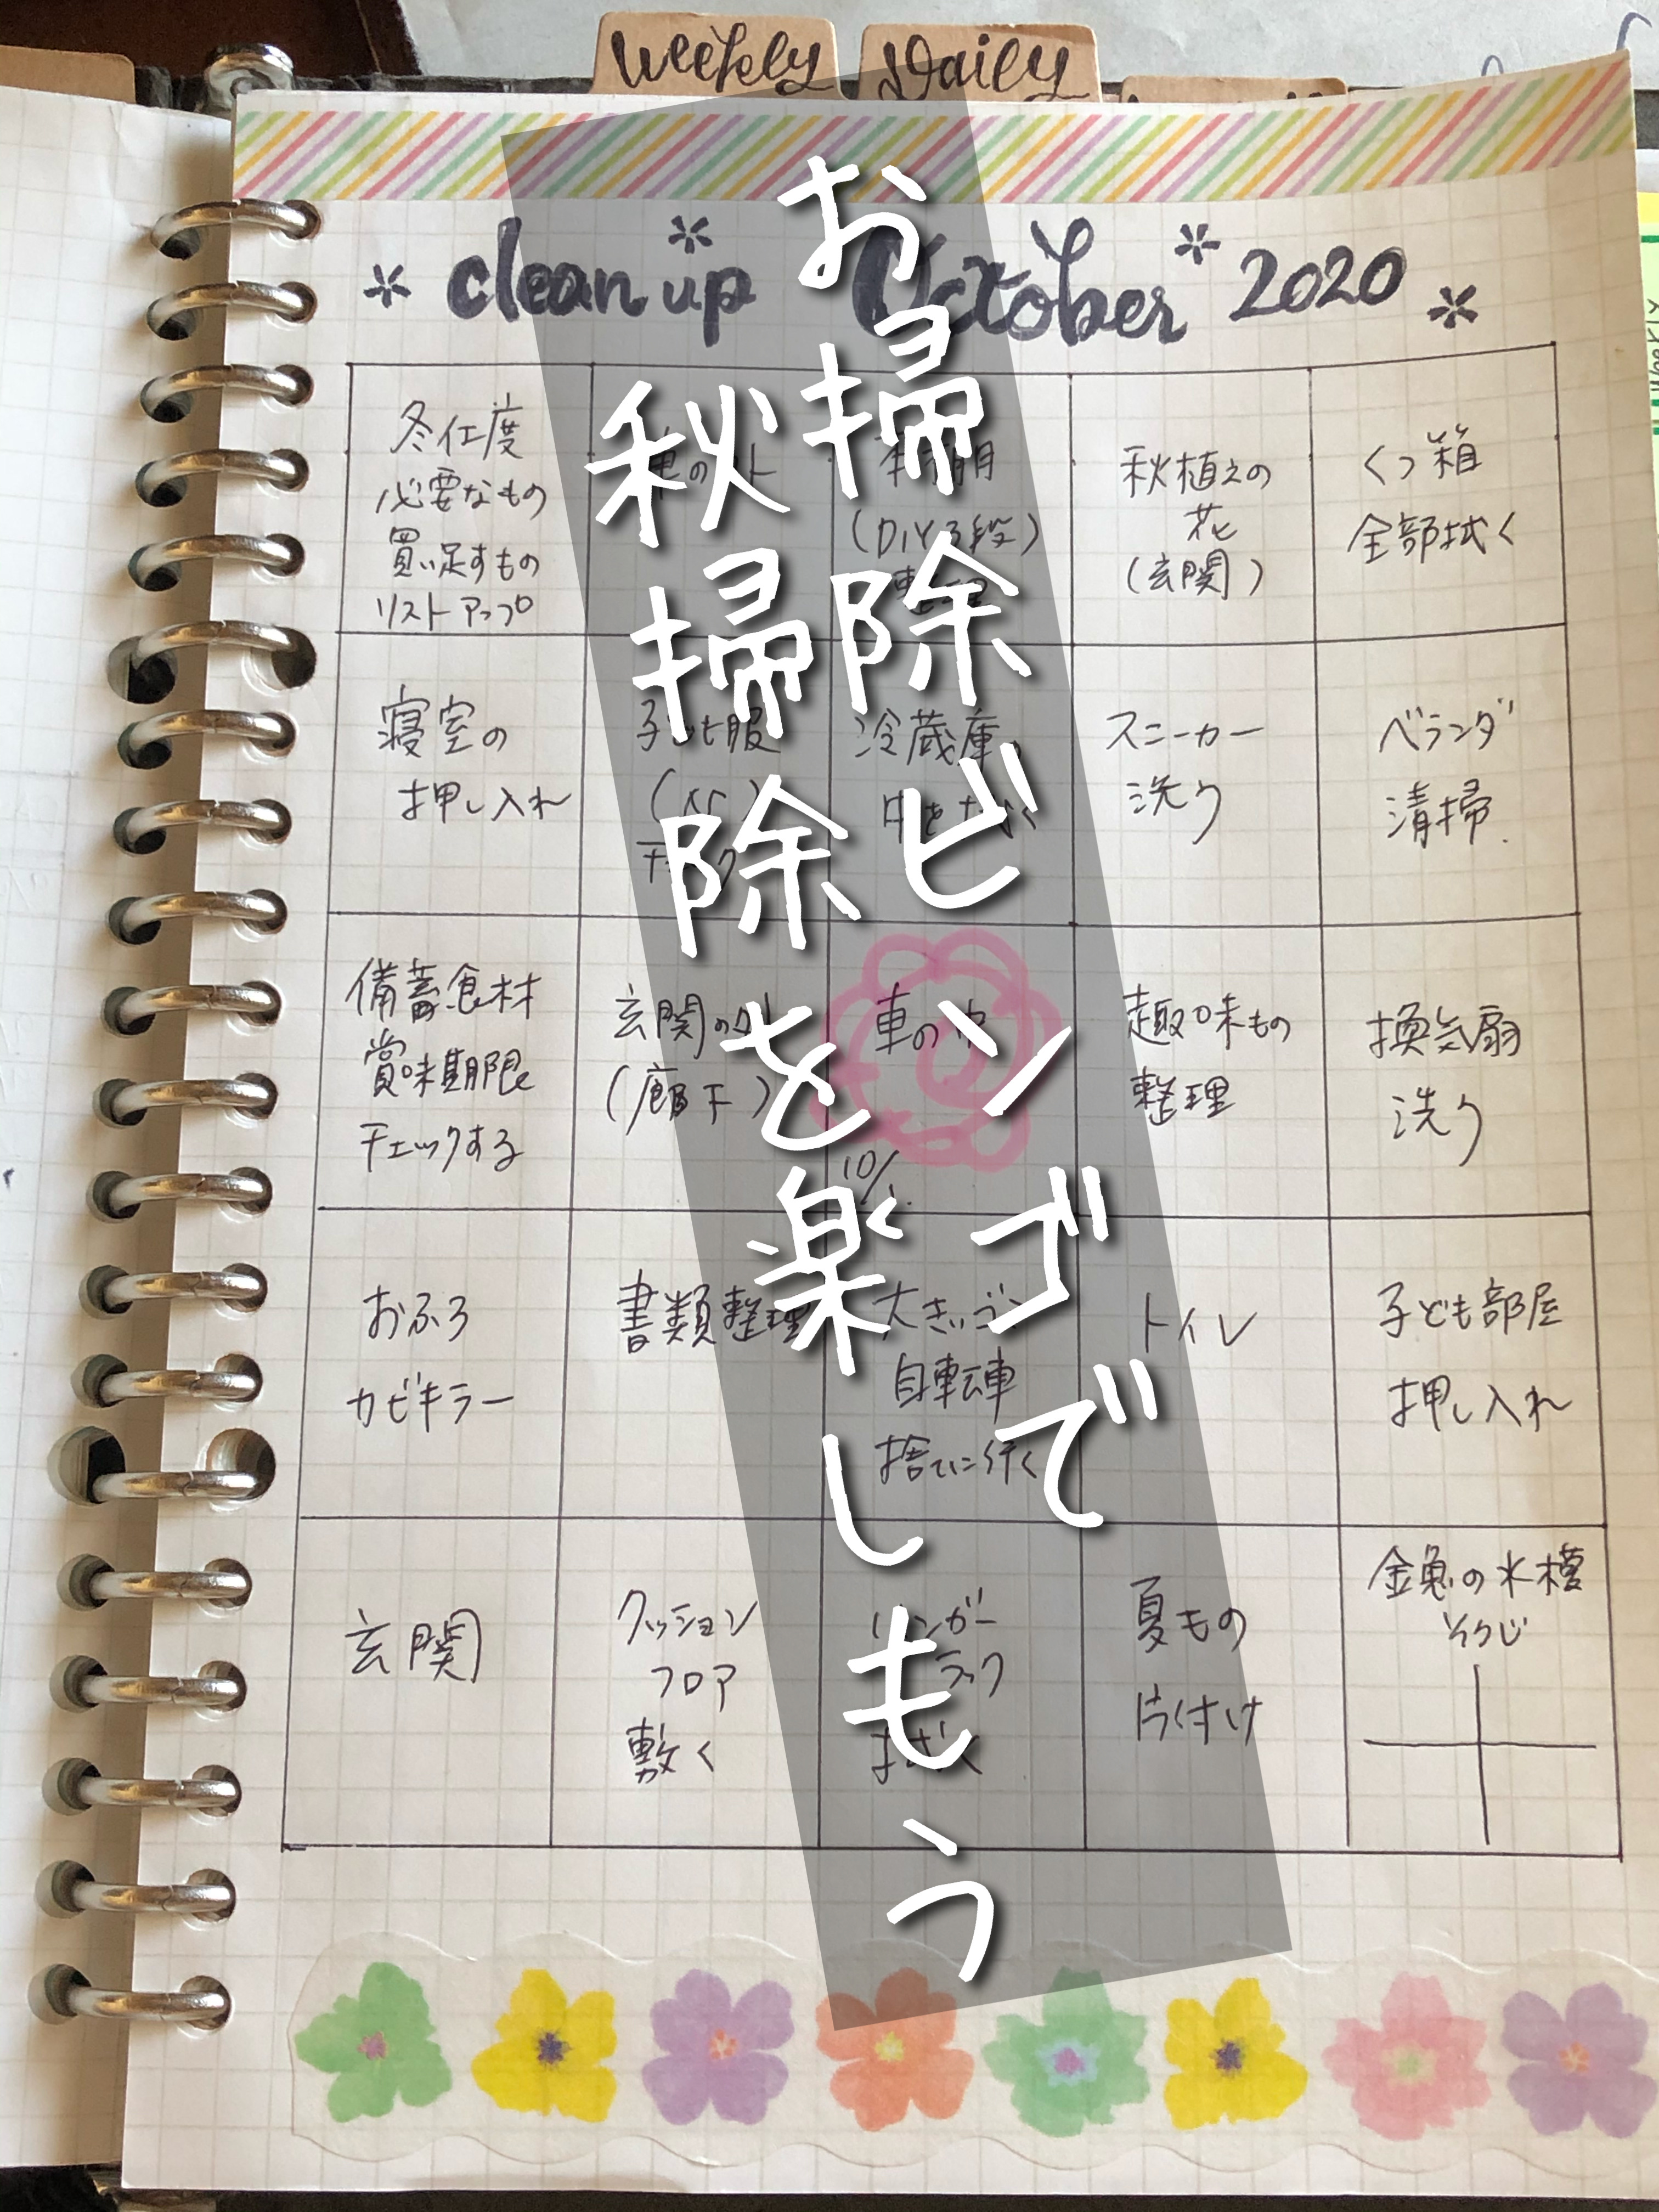 Weekly
Daily
お掃除ビンゴで
秋掃除を楽しもう
clean up October 2020
冬仕度
必要なもの
買い足すもの
リストアップ
本棚
(DIY3段)
整理
秋植えの
花
(玄関)
くつ箱
全部拭く
寝室の
押し入れ
子ども服
冷蔵庫
スニーカー
洗う
ベランダ
清掃
備蓄食材
賞味期限
チェックする
玄関の
(廊下)
車の中
10/
趣味もの
整理
換気扇
洗う
おふろ
カビキラー
書類整理
大きいゴミ
自転車
捨てに行く
トイレ
子ども部屋
押し入れ
玄関
クッション
フロア
敷く
ハンガー
ラック
夏もの
片付け
金魚の水槽
そうじ